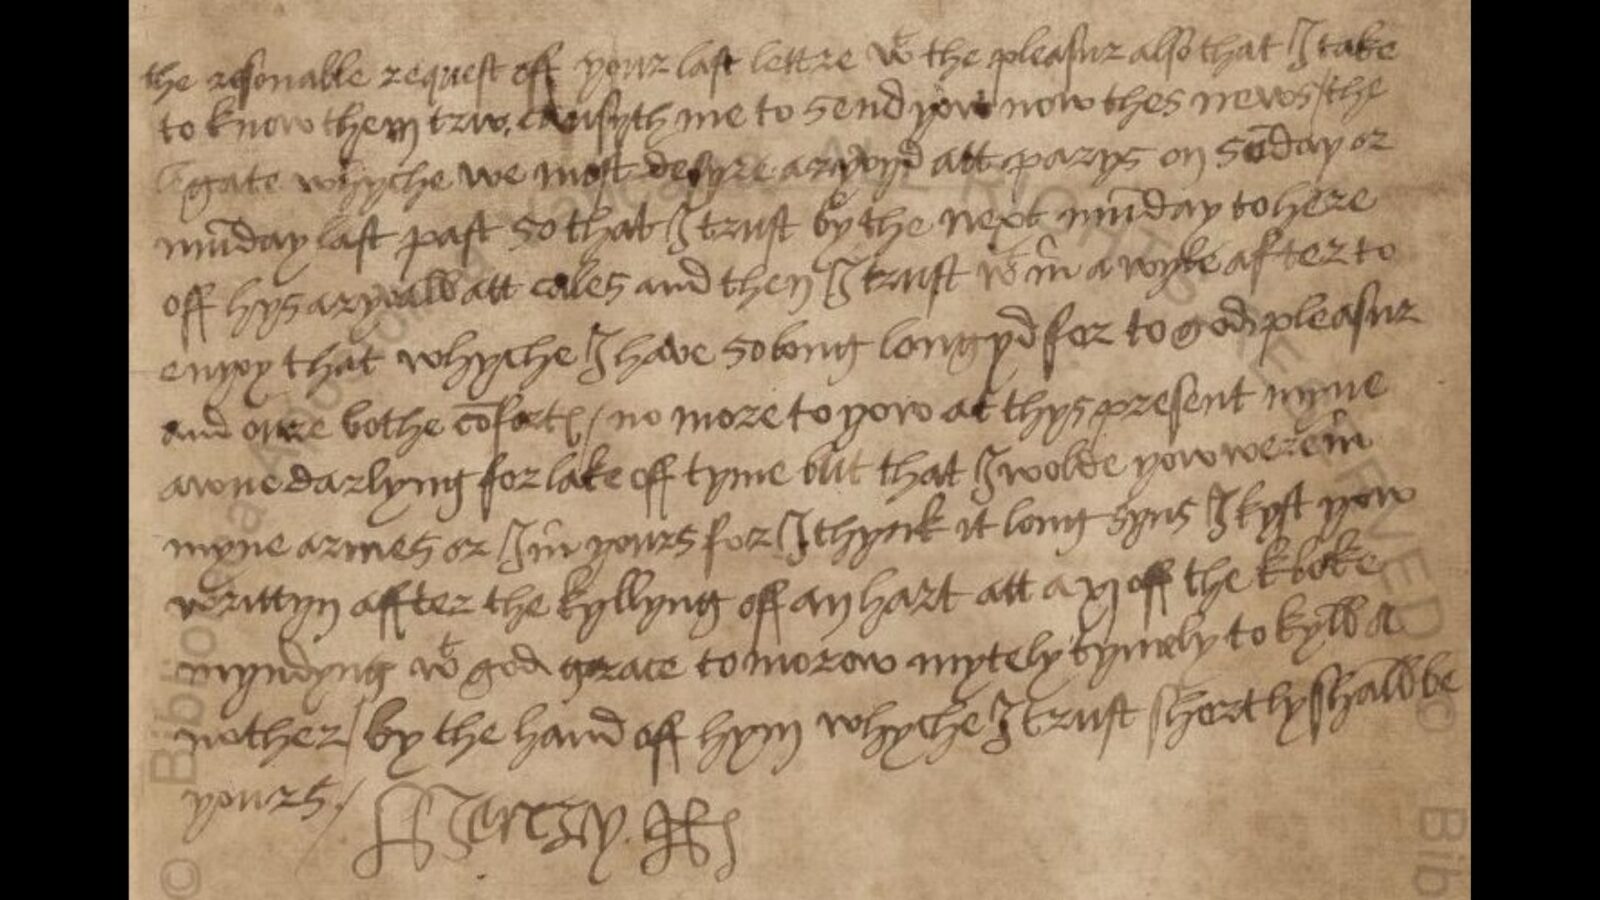 the resonable request off your last lettre wt the pleasur also that I take
to know them trw, causyth me to send yow now thes news / the
legate whyche we most desyre aryvyd att parys on sūday or
mūday last past so that I trust by the next mūday to here
off hys aryvall att cales and then I trust wt in a wyle after to
enyoy that whyche I have so long longyd for to gods pleasur
and oure bothe cōfortes / no more to yow at thys present myne
awne darlyng for lake off tyme but that I wolde yow were in
myne armes or I in yours for I thynk it long syns I kyst yow
writtyn affter the kyllyng off an hart att a xj off the kloke
myndyng wt gods grace tomorow mytely tymely to kyll a
nother / by the hand off hym whyche I trust shortly shall be
yours /
Henry R
© Biblioteca Apostolica Vaticana ALL RIGHTS RESERVED
© Bib